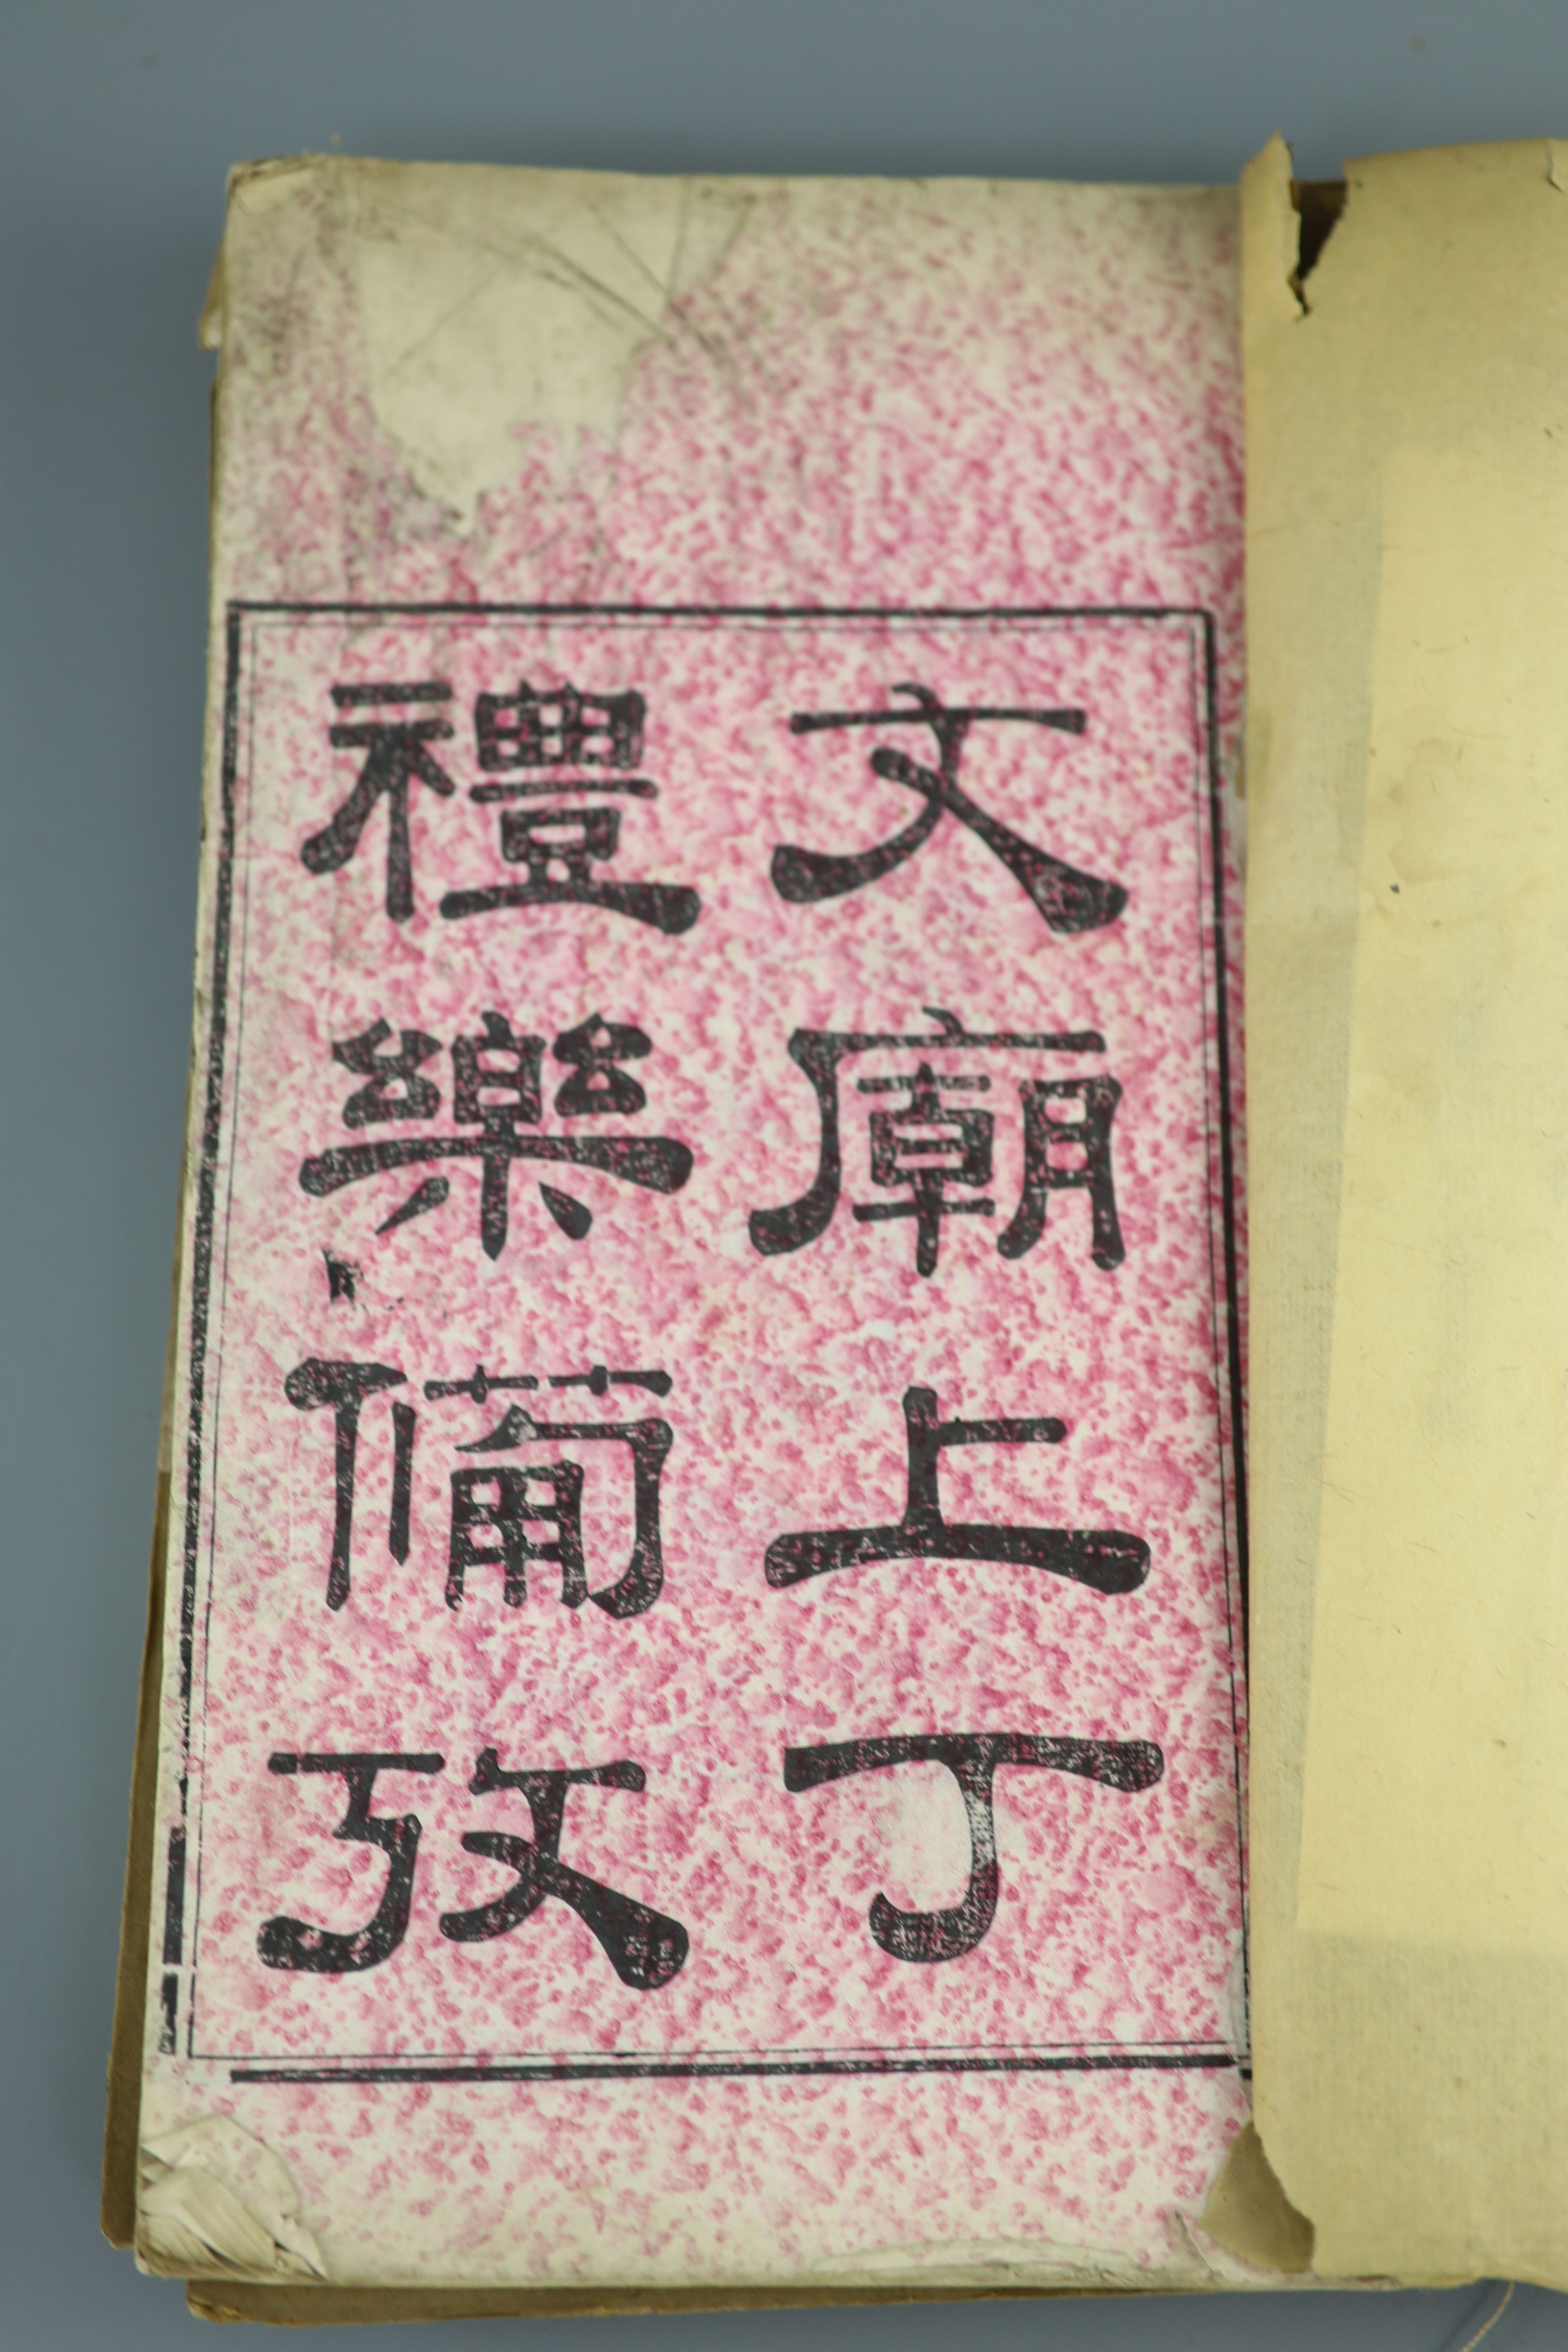 文廟上丁
禮樂備攷